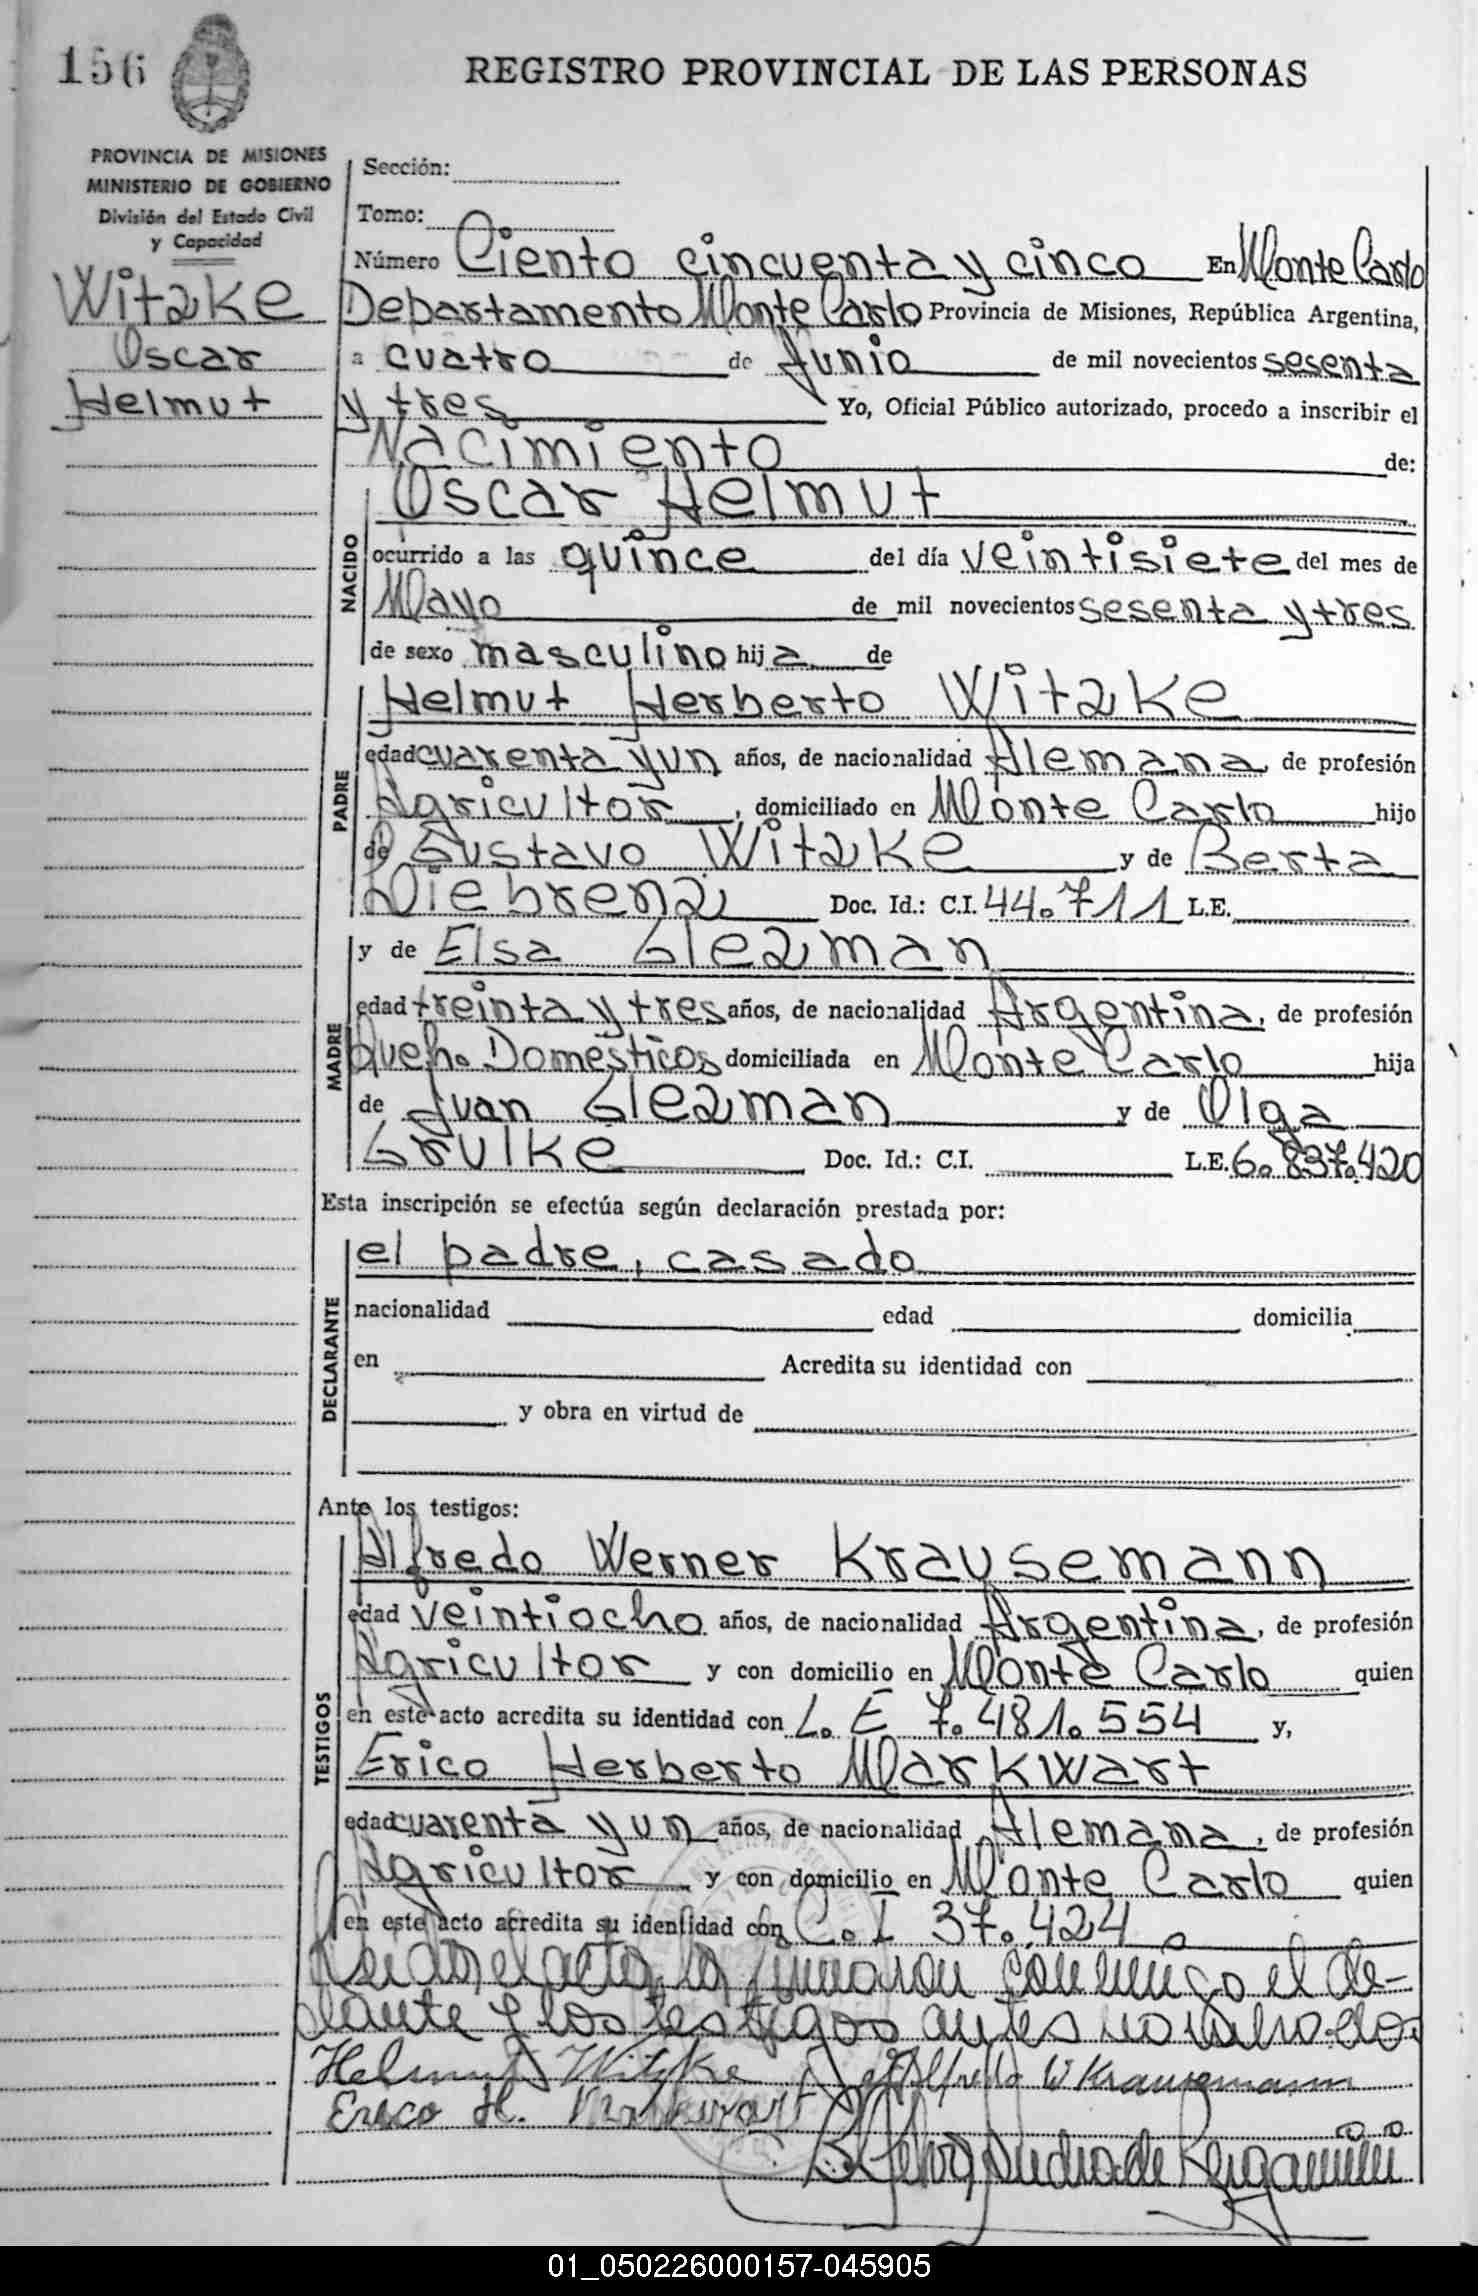 156
REGISTRO PROVINCIAL DE LAS PERSONAS
PROVINCIA DE MISIONES
MINISTERIO DE GOBIERNO
División del Estado Civil
y Capacidad
Witzke
Oscar
Helmut
Sección:
Tomo:
Número Ciento cincuenta y cinco En Monte Carlo
Departamento Monte Carlo Provincia de Misiones, República Argentina,
a cuatro de Junio de mil novecientos sesenta
y tres Yo, Oficial Público autorizado, procedo a inscribir el
Nacimiento de:
NACIDO
Oscar Helmut
ocurrido a las quince del día veintisiete del mes de
Mayo de mil novecientos sesenta y tres
de sexo masculino hijo de
PADRE
Helmut Herberto Witzke
edad cuarenta y un años, de nacionalidad Alemana, de profesión
Agricultor, domiciliado en Monte Carlo hijo
de Gustavo Witzke y de Berta
Diebrenz Doc. Id.: C.I. 44.711 L.E.
MADRE
y de Elsa Glezman
edad treinta y tres años, de nacionalidad Argentina, de profesión
Queh. Domésticos domiciliada en Monte Carlo hija
de Juan Glezman y de Olga
Grulke Doc. Id.: C.I. L.E. 6.837.420
Esta inscripción se efectúa según declaración prestada por:
DECLARANTE
el padre, casado
nacionalidad edad domicilia
en Acredita su identidad con
y obra en virtud de
Ante los testigos:
TESTIGOS
Alfredo Werner Krausemann
edad veintiocho años, de nacionalidad Argentina, de profesión
Agricultor y con domicilio en Monte Carlo quien
en este acto acredita su identidad con L. E 7.481.554 y,
Erico Herberto Markwart
edad cuarenta y un años, de nacionalidad Alemana, de profesión
Agricultor y con domicilio en Monte Carlo quien
en este acto acredita su identidad con C. I 37.424
Leido el acta, la firmaron conmigo el de-
clarante y los testigos antes nombrados
Helmut Witzke Alfredo W Krausemann
Erico H. Markwart
de Bergamini
01_050226000157-045905